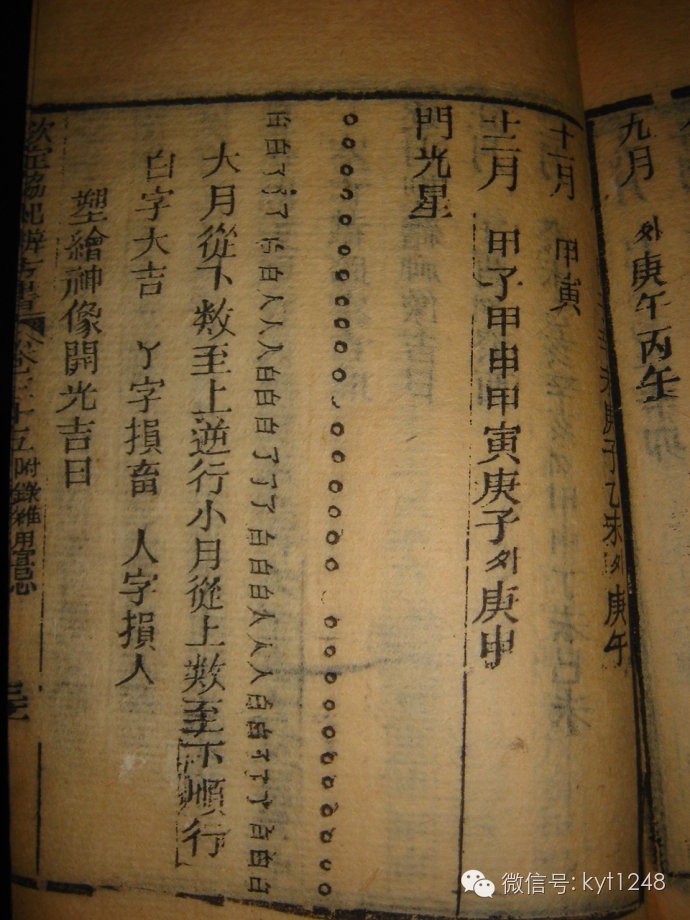 九月 外庚午丙午
未庚子乙未外庚午
十一月 甲寅
十二月 甲子甲申甲寅庚子外庚申
門光星
○○○○○○○○○○○○○○○○○○○○○○○○○○○○○○
白白丫丫丫白白人人人白白白丫丫丫白白白人人人白白丫丫丫白白白
大月從下数至上逆行小月從上数至下順行
白字大吉 丫字損畜 人字損人
塑繪神像開光吉日
欽定協紀辨方書 卷三十五 附錄雜用宜忌
微信号: kyt1248